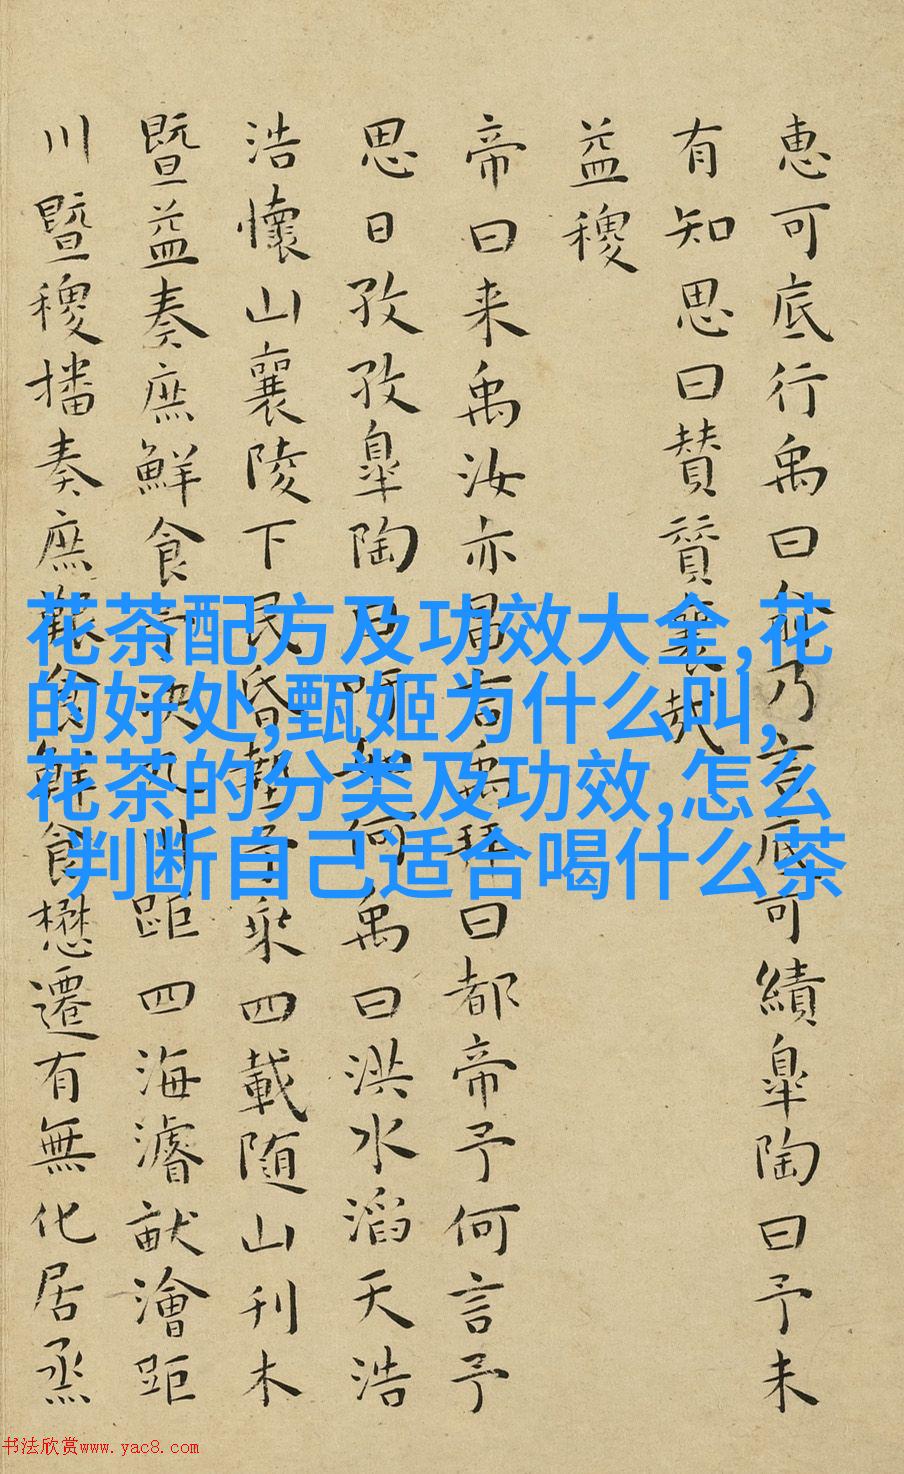 惠可底行禹曰俞乃言底可績皐陶曰予未
有知思曰賛賛襄哉
益稷
帝曰来禹汝亦昌言禹拜曰都帝予何言予
思日孜孜皐陶曰吁如何禹曰洪水滔天浩
浩懷山襄陵下民昏墊予乗四載随山刊木
暨益奏庶鮮食予決九川距四海濬畎澮距
川暨稷播奏庶艱食鮮食懋遷有無化居烝
花茶配方及功效大全,花
的好处,甄姬为什么叫,
花茶的分类及功效,怎么
判断自己适合喝什么茶
书法欣赏www.yac8.com